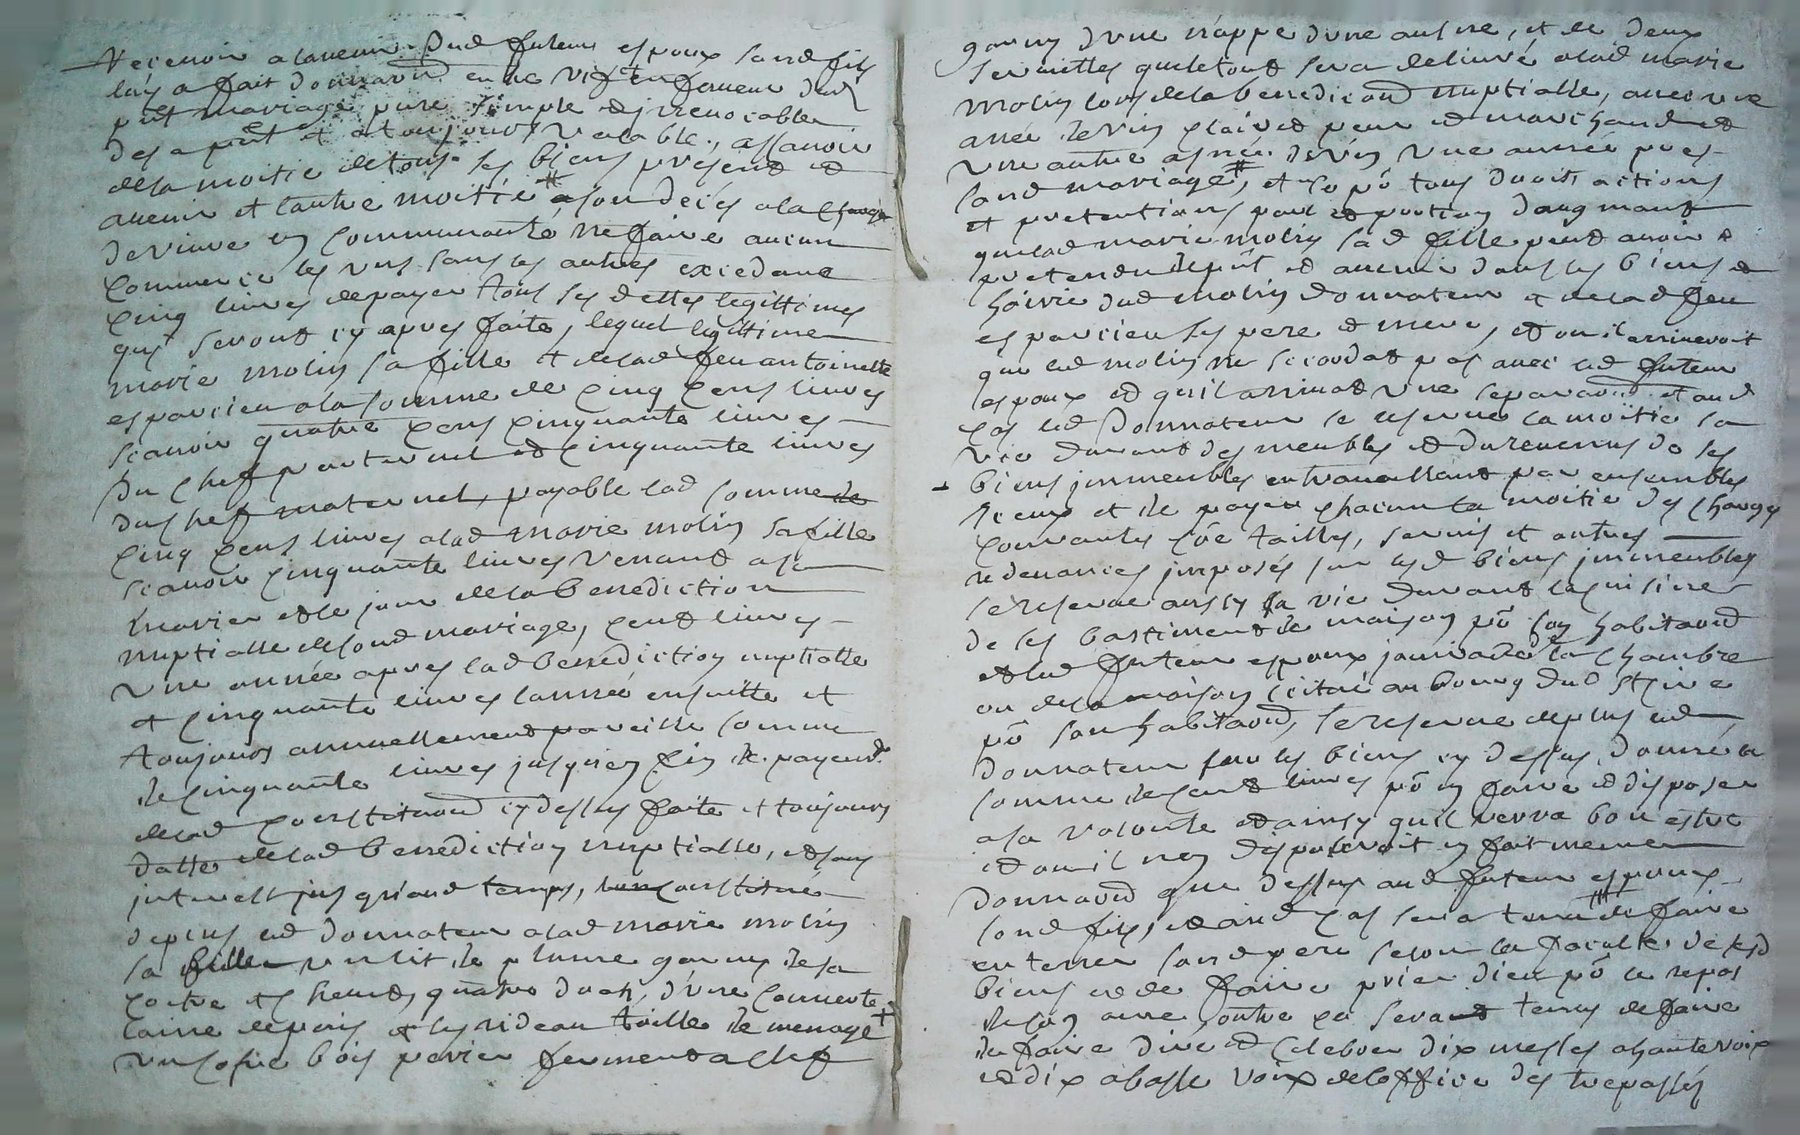 recevoir a lavenir. Dud futeur espoux sond fils
luy a fait donnaōn entre vifs en faveur dud
pnt mariage pure simple et jrrevocable
des a pnt et a toujours valable, assavoir
de la moitie de tous ses biens presend et
avenir et lautre moitié # a son deces a la charge
de vivre en communauté ne faire aucun
commerce les uns sans les autres excedant
cinq livres de payer tous ses dettes legittimes
quy seront cy apres faite, lequel legittime
marie molin sa fille et de lad feu antoinette
esparcieu a la somme de cinq cens livres
scavoir quatre cens cinquante livres
du chef paternel et cinquante livres
du chef maternel, payable lad somme de
cinq cens livres a lad marie molin sa fille
scavoir cinquante livres venant a se
marier et le jour de la benediction
nuptialle de sond mariage, cent livres
une année apres lad benediction nuptialle
et cinquante livres lannée ensuitte et
toujours annuellement pareille somme
de cinquante livres jusqu'en fin de payemt
de lad constitutiōn cy dessus faite et toujours
datte de lad benediction nuptialle, et sans
jnterest jusqu'aud temps, constitue
deplus led donnateur a lad marie molin
sa fille un lit de plume garny de sa
coitre et chevet, quatre draps, d'une couverte
laine de pais et les rideau toille de menage +
un cofre bois perier fermend a clef
garny d'une nappe d'une aulne, et de deux
serviettes que le tout sera delivré a lad marie
molin lors de la benediction nuptialle, avec une
anee de vin clairet pur et marchand et
une autre asnée de vin une année apres
sond mariage #, et ce pō tous droits, actions
et pretentions part et portion daugmant
que lad marie molin sad fille peut avoir et
pretendre de pnt et avenir dans les biens et
hoirie dud molin donnateur et de lad feu
esparcieu ses pere et mere, et ou il arriveroit
que led molin ne s'ecordat pas avec led futeur
espoux et qu'il arrivat une separaōn et aud
cas led donnateur se reserve la moitie sa
vie durant des meubles et du revenus de ses
biens jmmeubles en travaillant par ensembles
jceux et de payer chacun la moitie des charges
courantes cōe tailles, servis et autres
redevances jmposés sur lesd biens jmmeubles
se reserve aussy sa vie durant la cuisine
de ses bastiment de maison pō son habitaōn
et led futeur espoux jouira de la chambre
ou de sa maison scitué au bourg dud St
pō son habitaōn, se reserve deplus led
donnateur sur les biens cy dessus donné la
somme de cent livres pō en faire et disposer
a sa volonte et ainsy quil verra bon estre
et ou il n'en disposeroit en fait mesme
donnaōn que dessus aud futeur espoux
sond fils, et aud cas sera tenu de faire
enterrer sond pere selon la faculte de sesd
biens et de faire prier dieu pō le repos
de son ame, outre ce sera tenus de faire
de faire dire et celebrer dix messes a haute voix
et dix a basse voix de l'office des trepassés